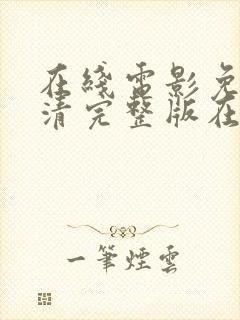 在綫電影免
清完整版在
一筆煙雲